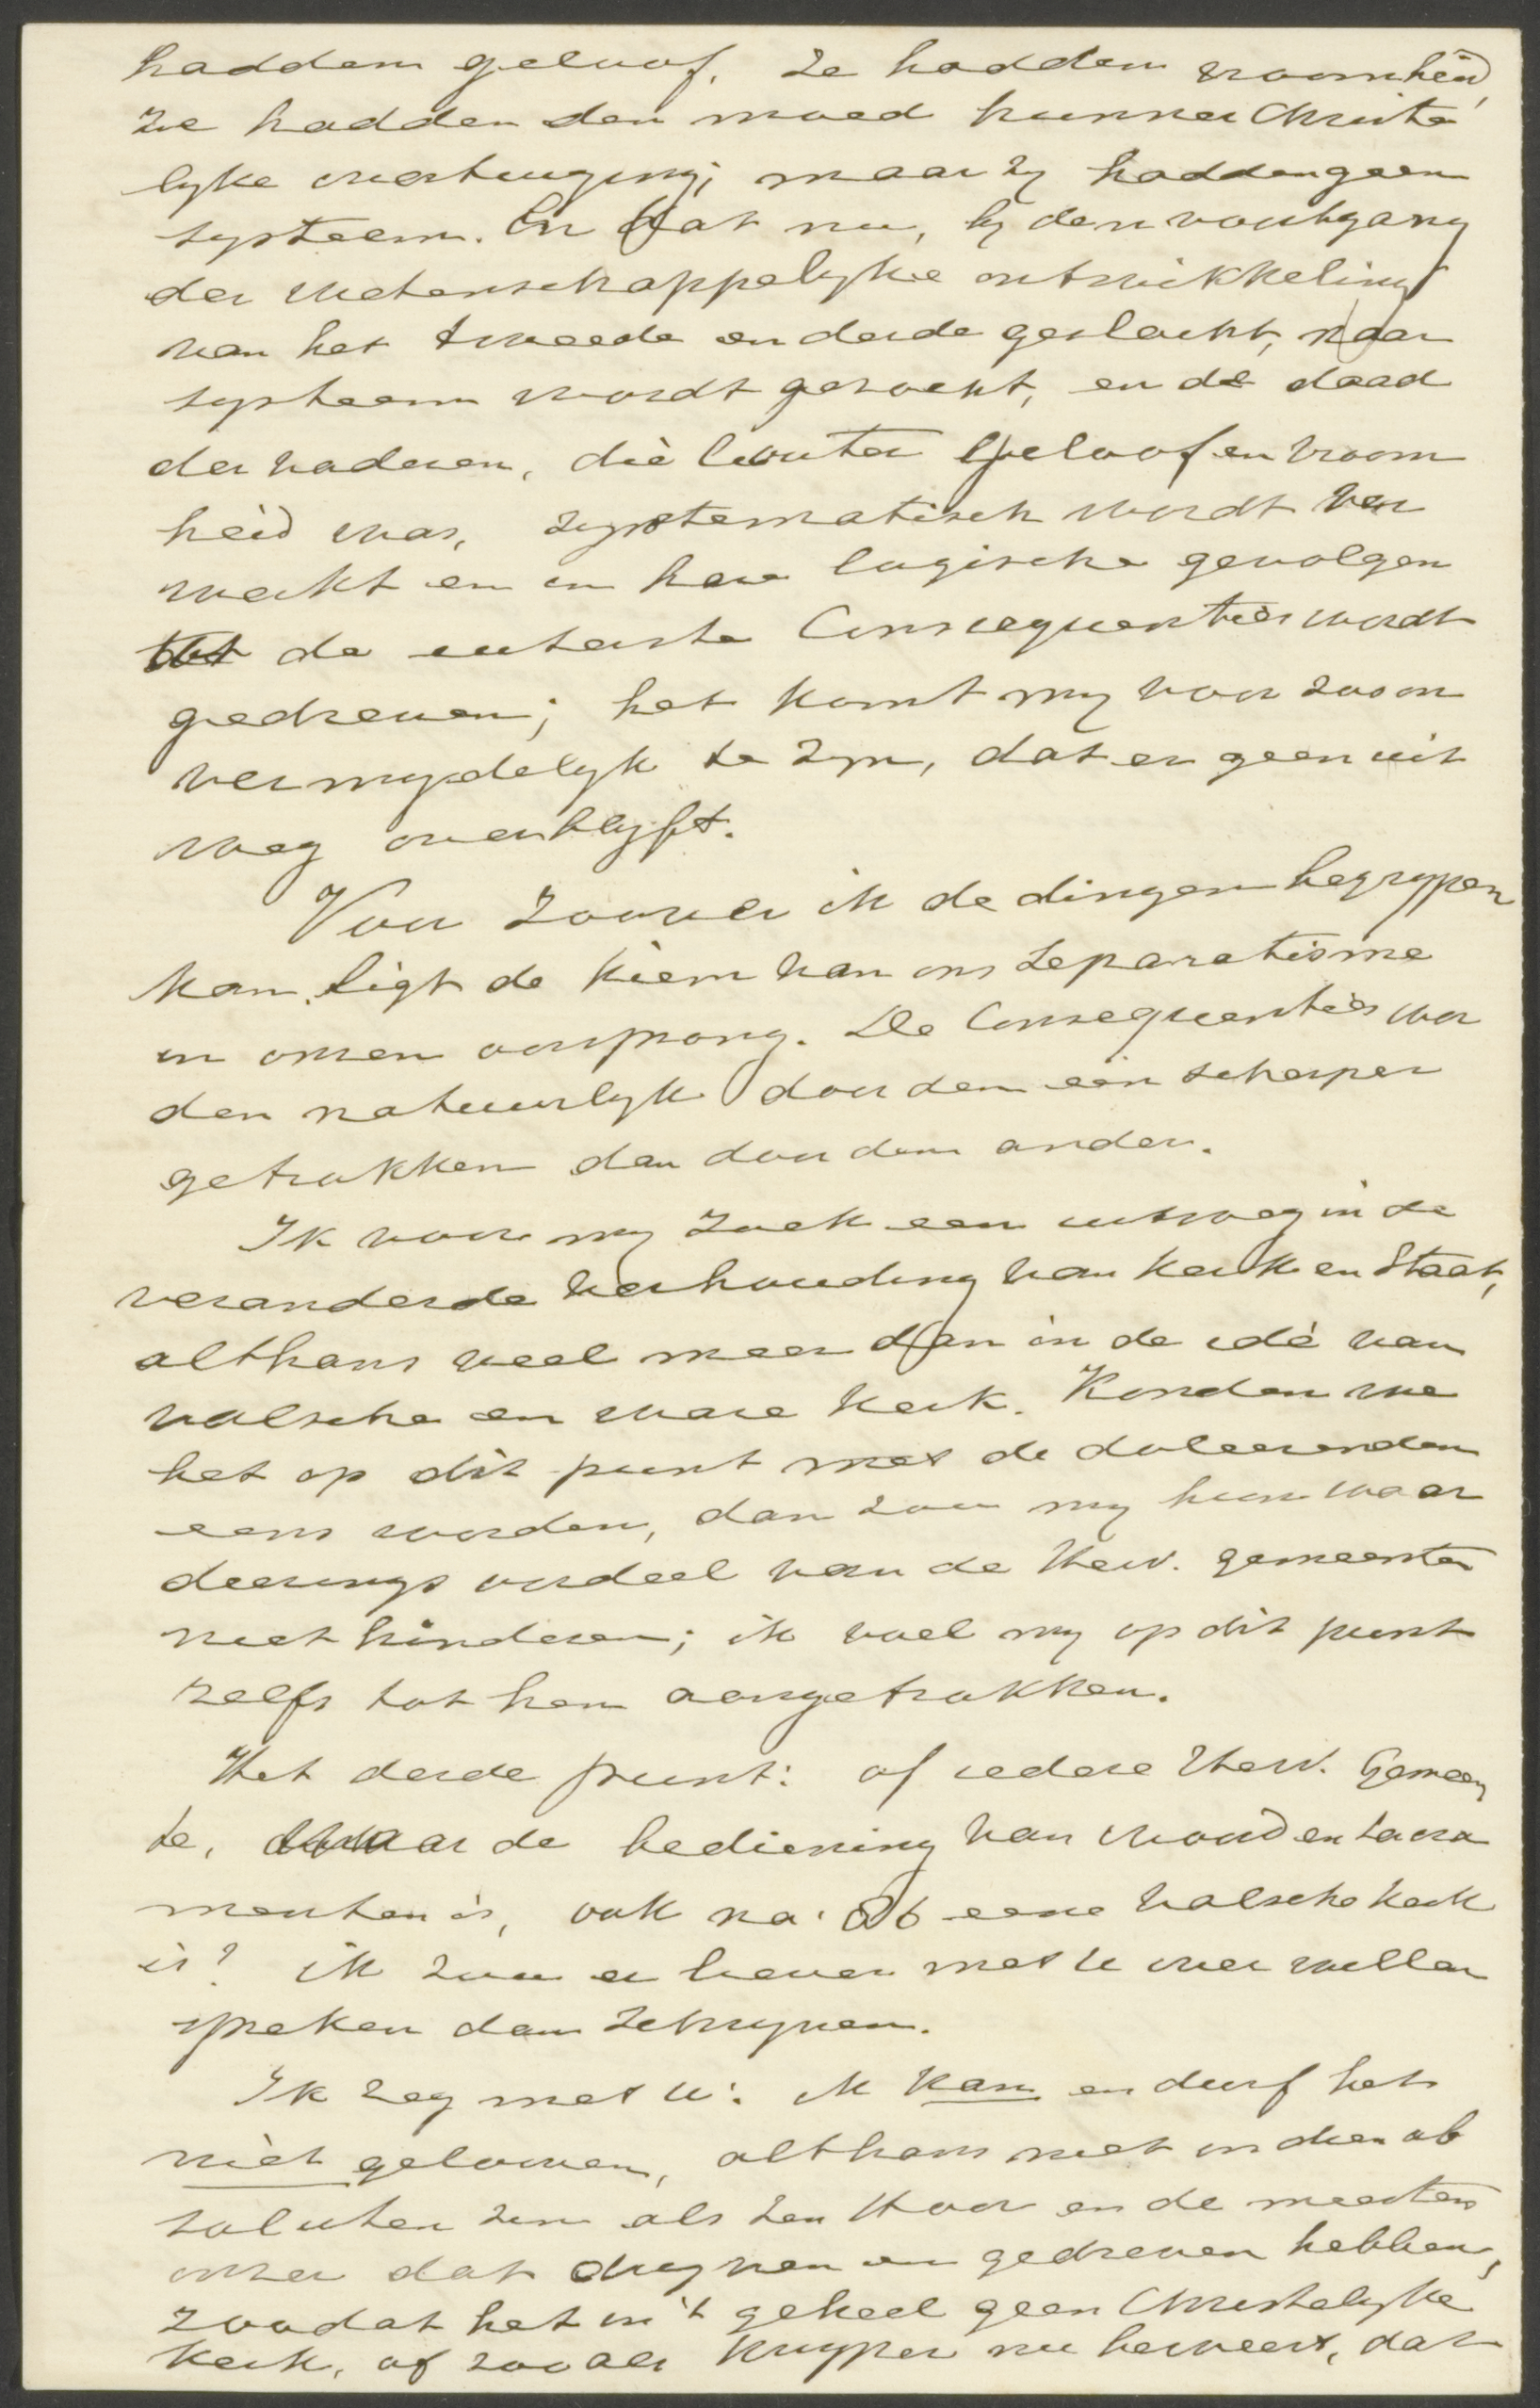 hadden geloof. Ze hadden vroomheid,
ze hadden den moed hunner Christe
lyke overtuiging; maar zy hadden geen
systeem. En dat nu, by den voortgang
der wetenschappelyke ontwikkeling
van het tweede en derde geslacht, naar
systeem wordt gezocht, en de daad
der vaderen, die louter geloof en vroom
heid was, systematisch wordt ver
werkt en in hare logische gevolgen
tot de uiterste Consequentiën wordt
gedreven; het komt my voor zoo on
vermydelyk te zyn, dat er geen uit
weg overblyft.
Voor zoover ik de dingen begrypen
kan, ligt de kiem van ons separatisme
in onzen oorsprong. De Consequentiën wor
den natuurlyk door den een scherper
getrokken dan door den ander.
Ik voor my zoek een uitweg in de
veranderde verhouding van kerk en Staat,
althans veel meer dan in de idé van
valsche en ware kerk. Konden we
het op dit punt met de doleerenden
eens worden, dan zou my hun waar
deerings oordeel van de Herv. gemeenten
niet hinderen; ik voel my op dit punt
zelfs tot hen aangetrokken.
Het derde punt: of iedere Herv. Gemeen
te, waar de bediening van woord en sacra
menten is, ook na '86 eene valsche kerk
is? ik zou er liever met u over willen
spreken dan schryven.
Ik zeg met u: ik kan en durf het
niet gelooven, althans niet in dien ab
soluten zin als ten Hoor en de meesten
onzer dat dryven en gedreven hebben,
zoodat het in 't geheel geen Christelyke
kerk, of zooals Kuyper nu beweert, dat